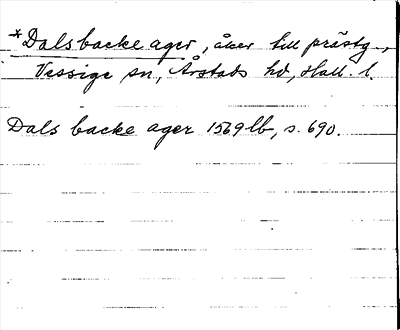 *Dalsbacke ager, åker till prästg.,
Vessige sn, Årstads hd, Hall. l.
Dals backe ager 1569 lb, s. 690.